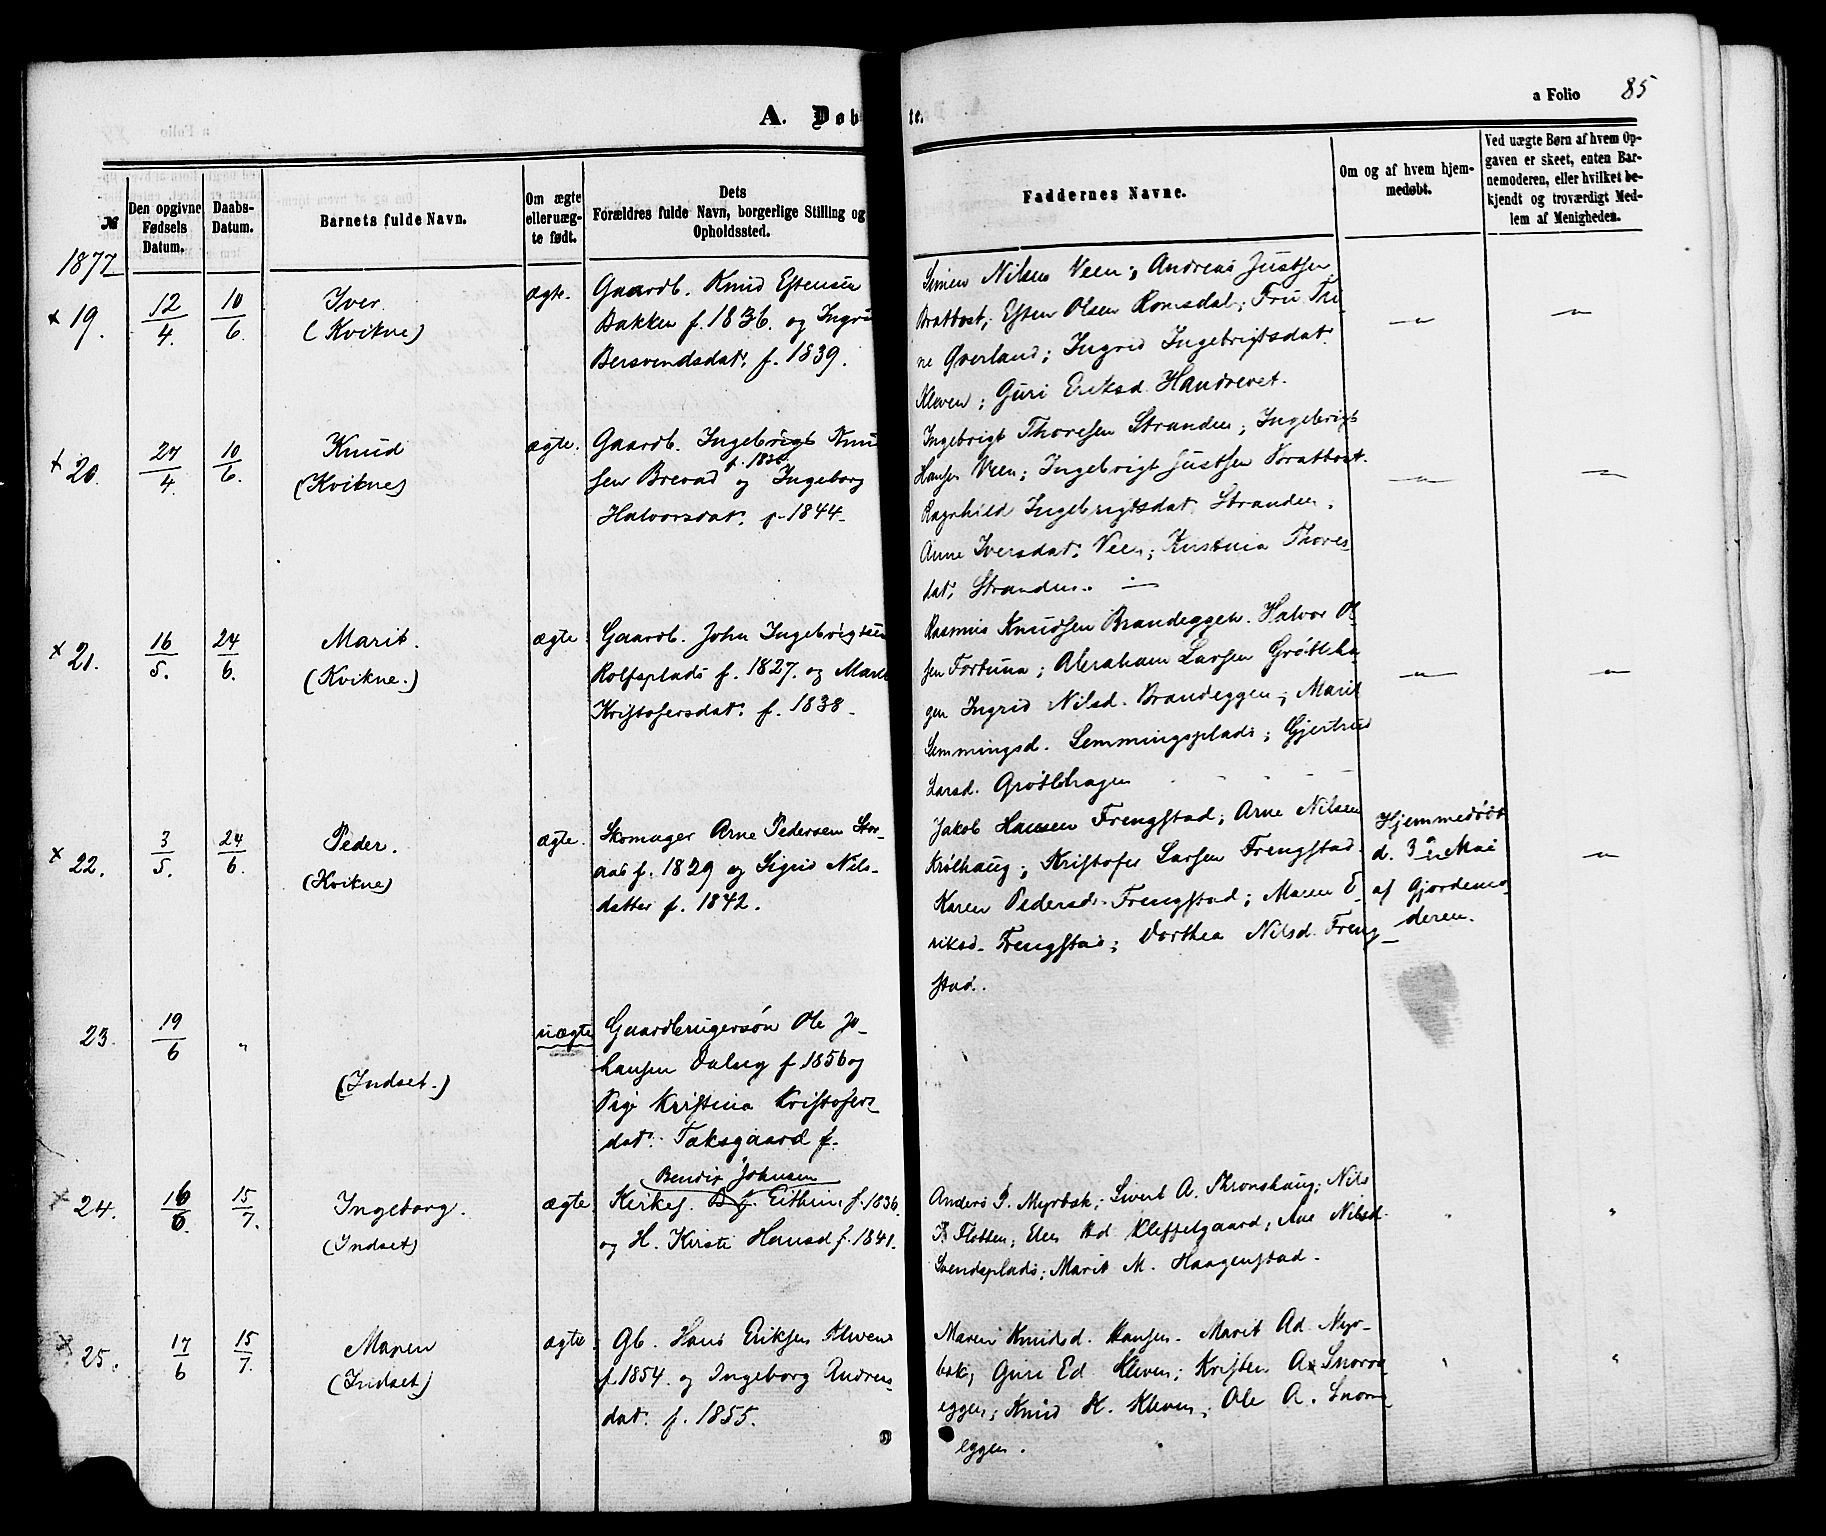 A. Døbte.
a Folio 85
№
Den opgivne
Fødsels
Datum.
Daabs-
Datum.
Barnets fulde Navn.
Om ægte
eller uæg-
te født.
Dets
Forældres fulde Navn, borgerlige Stilling og
Opholdssted.
Faddernes Navne.
Om og af hvem hjem-
medøbt.
Ved uægte Børn af hvem Op-
gaven er skeet, enten Bar-
nemoderen, eller hvilket be-
kjendt og troværdigt Med-
lem af Menigheden.
1877
x 19.
12/4.
10/6.
Iver.
(Kvikne)
ægte.
Gaardb. Knud Estensen
Bakken f. 1836. og Ingri
Bersvendsdat. f. 1839.
Simen Nilsen Veen; Andreas Justsen
Brattost; Esten Olsen Romsdal; Fru Tri
ne Qverland; Ingrid Ingebrigtsdat.
Kleven; Guri Eriksd. Handveret.
x 20.
24/4.
10/6.
Knud
(Kvikne)
ægte.
Gaardb. Ingebrigt Knud
f. 1836
sen Brevad og Ingeborg
Halvorsdat. f. 1844.
Ingebrigt Thoresen Stranden; Ingebrigt
Hansen Veen; Ingebrigt Justsen Brattost.
Ragnhild Ingebrigtsdat. Stranden;
Anne Iversdat. Veen; Kristina Thores-
dat. Stranden.
x 21.
16/5.
24/6.
Marit.
(Kvikne.)
ægte
Gaardb. John Ingebrigtsen
Rolfsplads f. 1827. og Marit
Kristofersdat. f. 1838.
Rasmus Knudsen Brandeggen. Halvor Ol
sen Fortuna; Abraham Larsen Grøttha
gen Ingrid Nilsd. Brandeggen; Marit
Semmingsd. Semmingsplads; Gjertrud
Larsd. Grøtthagen
x 22.
3/5.
24/6.
Peder.
(Kvikne)
ægte.
Skomager Arne Pedersen Stor-
aas f. 1829 og Sigrid Nils-
datter f. 1842.
Jakob Hansen Frengstad; Arne Nilsen
Krølhaug; Kristofer Larsen Frengstad.
Karen Pedersd. Frengstad; Maren E-
riksd. Frengstad; Dorthea Nilsd. Freng-
stad.
Hjemmedøbt
d. 3 Mai
af Gjordemo-
deren.
23.
19/6
"
(Indset.)
uægte
Gaardbrugersøn Ole Jo-
hansen Dalseg f 1856 og
Pige Kristina Kristofers-
dat. Taksgaard f.
x 24.
16/6.
15/7.
Ingeborg.
(Indset)
ægte
Bendix Johnsen
Kirkes. Eithun f. 1836.
og H. Kirsti Hansd f. 1841.
Anders P. Myrbæk; Sivert A. Thronshaug; Nils
P. Flotten; Elen Kleppelgaard; Ane Nilsd.
Svendsplads; Marit M. Haagenstad.
x 25.
17/6
15/7.
Maren
(Indset)
ægte.
Gb. Hans Eriksen Kleven
f. 1854. og Ingeborg Anders-
dat. f. 1855.
Maren Knudsd. Hansen. Marit Ad. Myr-
bæk; Guri Ed. Kleven; Kristen A. Snoro
eggen; Knud H. Kleven; Ole A. Snoro
eggen.